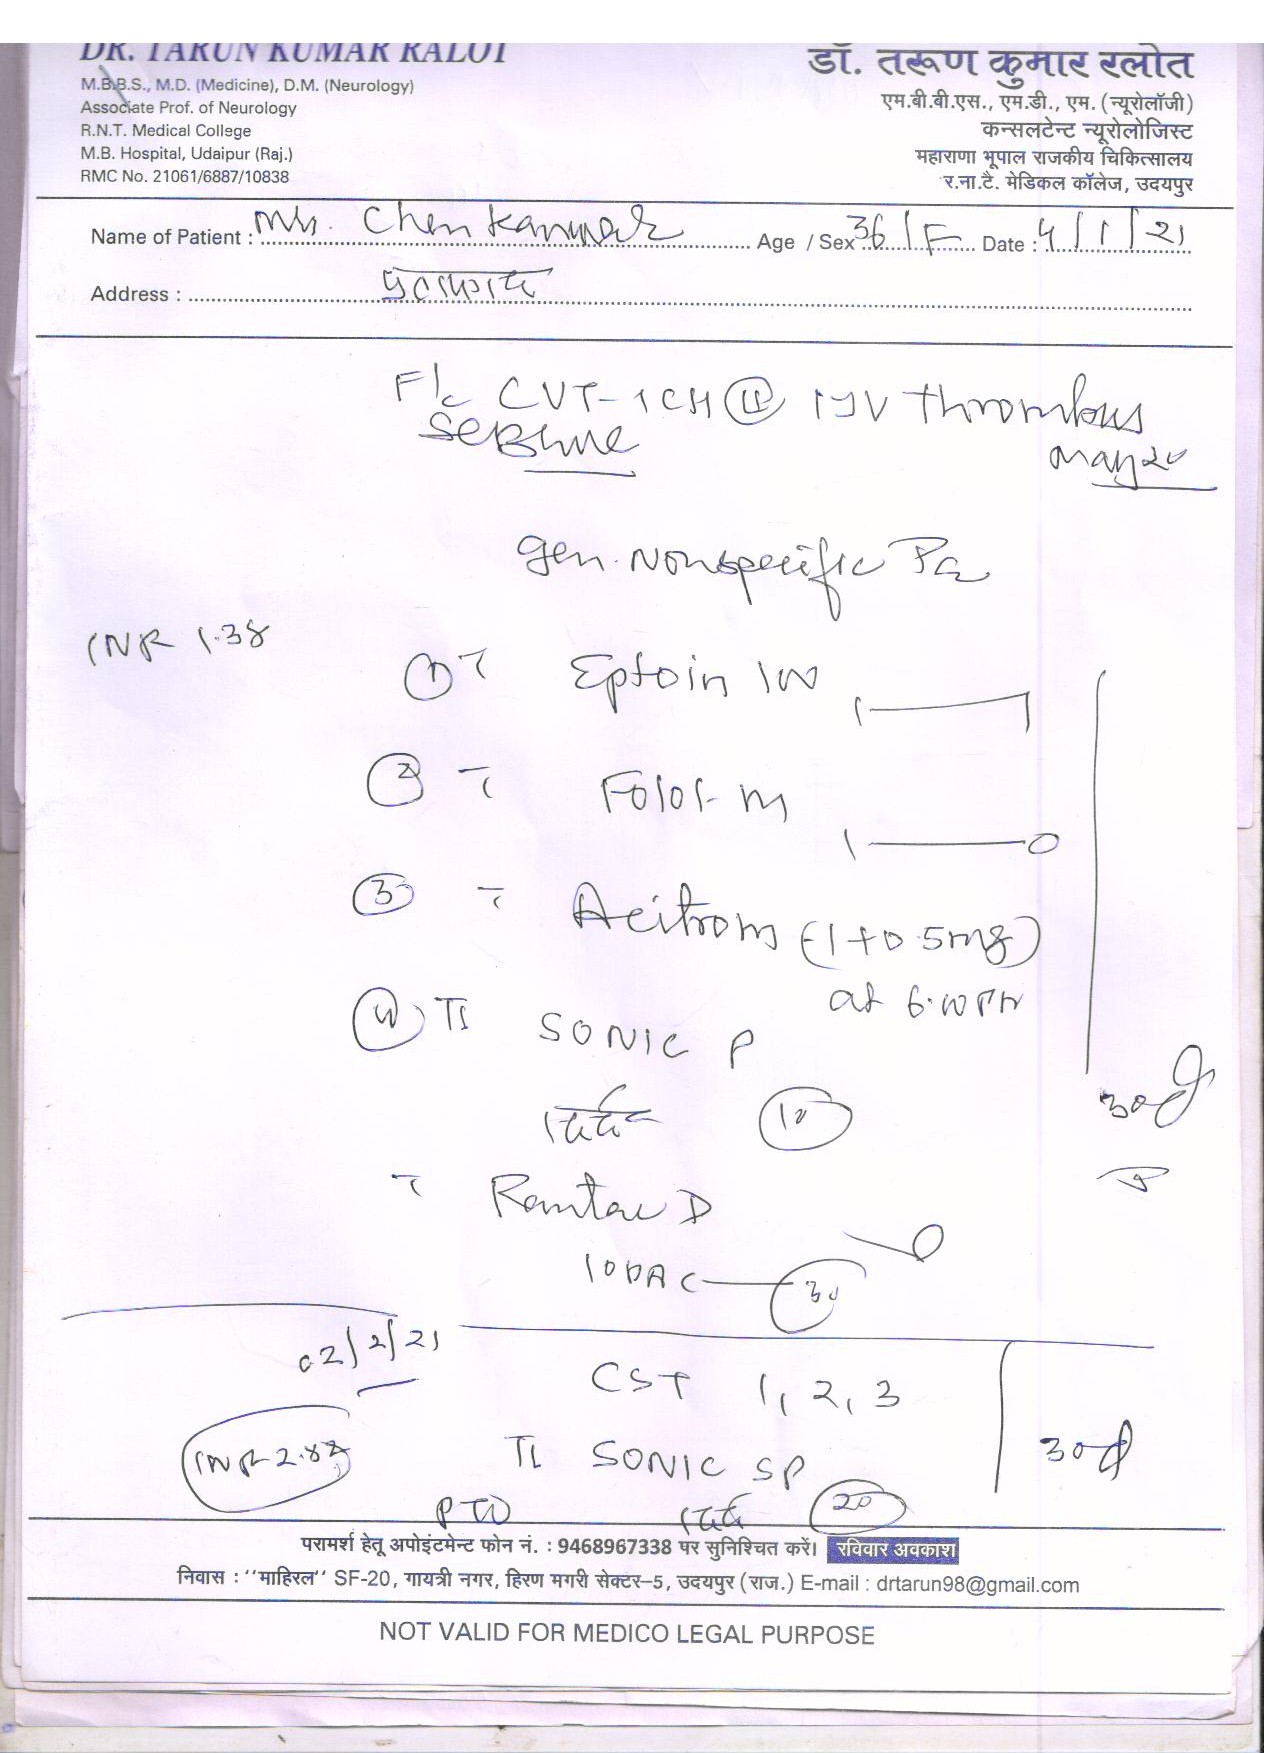 DR. TARUN KUMAR RALOT
M.B.B.S., M.D. (Medicine), D.M. (Neurology)
Associate Prof. of Neurology
R.N.T. Medical College
M.B. Hospital, Udaipur (Raj.)
RMC No. 21061/6887/10838
डॉ. तरूण कुमार रलोत
एम.बी.बी.एस., एम.डी., एम. (न्यूरोलॉजी)
कन्सलटेन्ट न्यूरोलोजिस्ट
महाराणा भूपाल राजकीय चिकित्सालय
र.ना.टै. मेडिकल कॉलेज, उदयपुर
Name of Patient : Mrs. Chen Kanwar Age / Sex 36/F Date : 4/1/21
Address :
F/c CVT-ICH @ IJV Thrombus
May 20
gen. Nonspecific
INR 1.38
① T Eptoin 100 1 — 1
② T 1 — 0
③ T Acitrom (1+0.5mg)
at 6.00 PM
④ T SONIC P
10
30 d
T Rantac D
1 OD AC — 30
02/2/21
CST 1, 2, 3
INR 2.82
T SONIC SP
30 d
PTO 20
परामर्श हेतू अपोइंटमेन्ट फोन नं. : 9468967338 पर सुनिश्चित करें। रविवार अवकाश
निवास : ''माहिरल'' SF-20, गायत्री नगर, हिरण मगरी सेक्टर-5, उदयपुर (राज.) E-mail : drtarun98@gmail.com
NOT VALID FOR MEDICO LEGAL PURPOSE